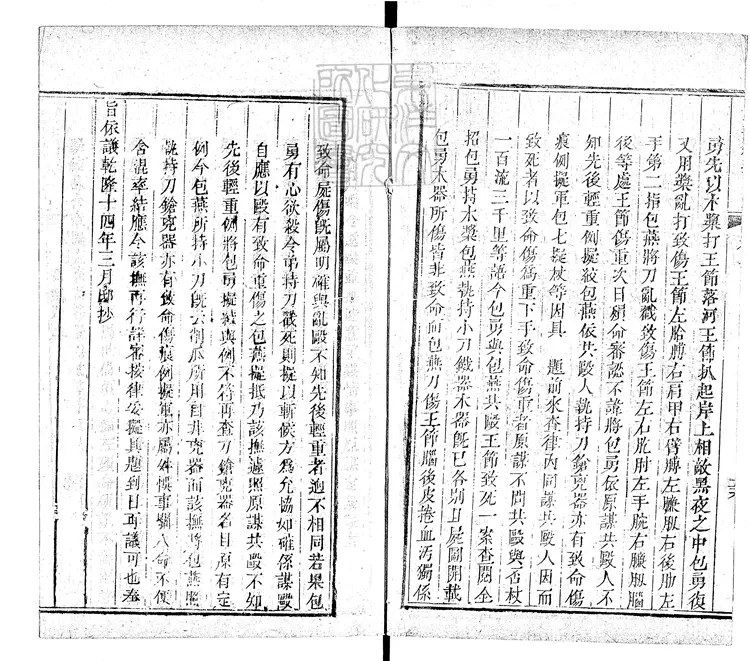 勇先以木槳打王節落河王節扒起岸上相敵黑夜之中包勇復
又用槳亂打致傷王節左胎膊右肩甲右臂膊左臁肕右後肋左
手第二指包燕將刀亂戳致傷王節左右肐肘左手腕右臁肕腦
後等處王節傷重次日殞命審認不諱將包勇依原謀共毆人不
知先後輕重例擬絞包燕依共毆人執持刀鎗兇器亦有致命傷
痕例擬軍包七擬杖等因具 題前來查律內同謀共毆人因而
致死者以致命傷爲重下手致命傷重者原謀不問共毆與否杖
一百流三千里等語今包勇與包燕共毆王節致死一案查閱全
招包勇持木槳包燕執持小刀鐵器木器旣已各別且屍圖開載
包勇木器所傷皆非致命而包燕刀傷王節腦後皮捲血汚獨係
致命屍傷旣屬明確與亂毆不知先後輕重者逈不相同若果包
勇有心欲殺令弟持刀戳死則擬以斬候方爲允協如確係謀毆
自應以毆有致命重傷之包燕擬抵乃該撫遽照原謀共毆不知
先後輕重例將包勇擬絞與例不符再查刀鎗兇器名目原有定
例今包燕所持小刀旣云割瓜應用自非兇器而該撫將包燕照
執持刀鎗兇器亦有致命傷痕例擬軍亦屬舛悞事關人命不便
含混率結應令該撫再行詳審按律妥擬具題到日再議可也奉
旨依議乾隆十四年三月邸抄